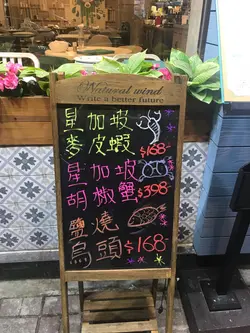 Natural wind
Write a better future
星加坡
麥皮蝦 $168-
星加坡
胡椒蟹 $398-
鹽燒
烏頭 $168-